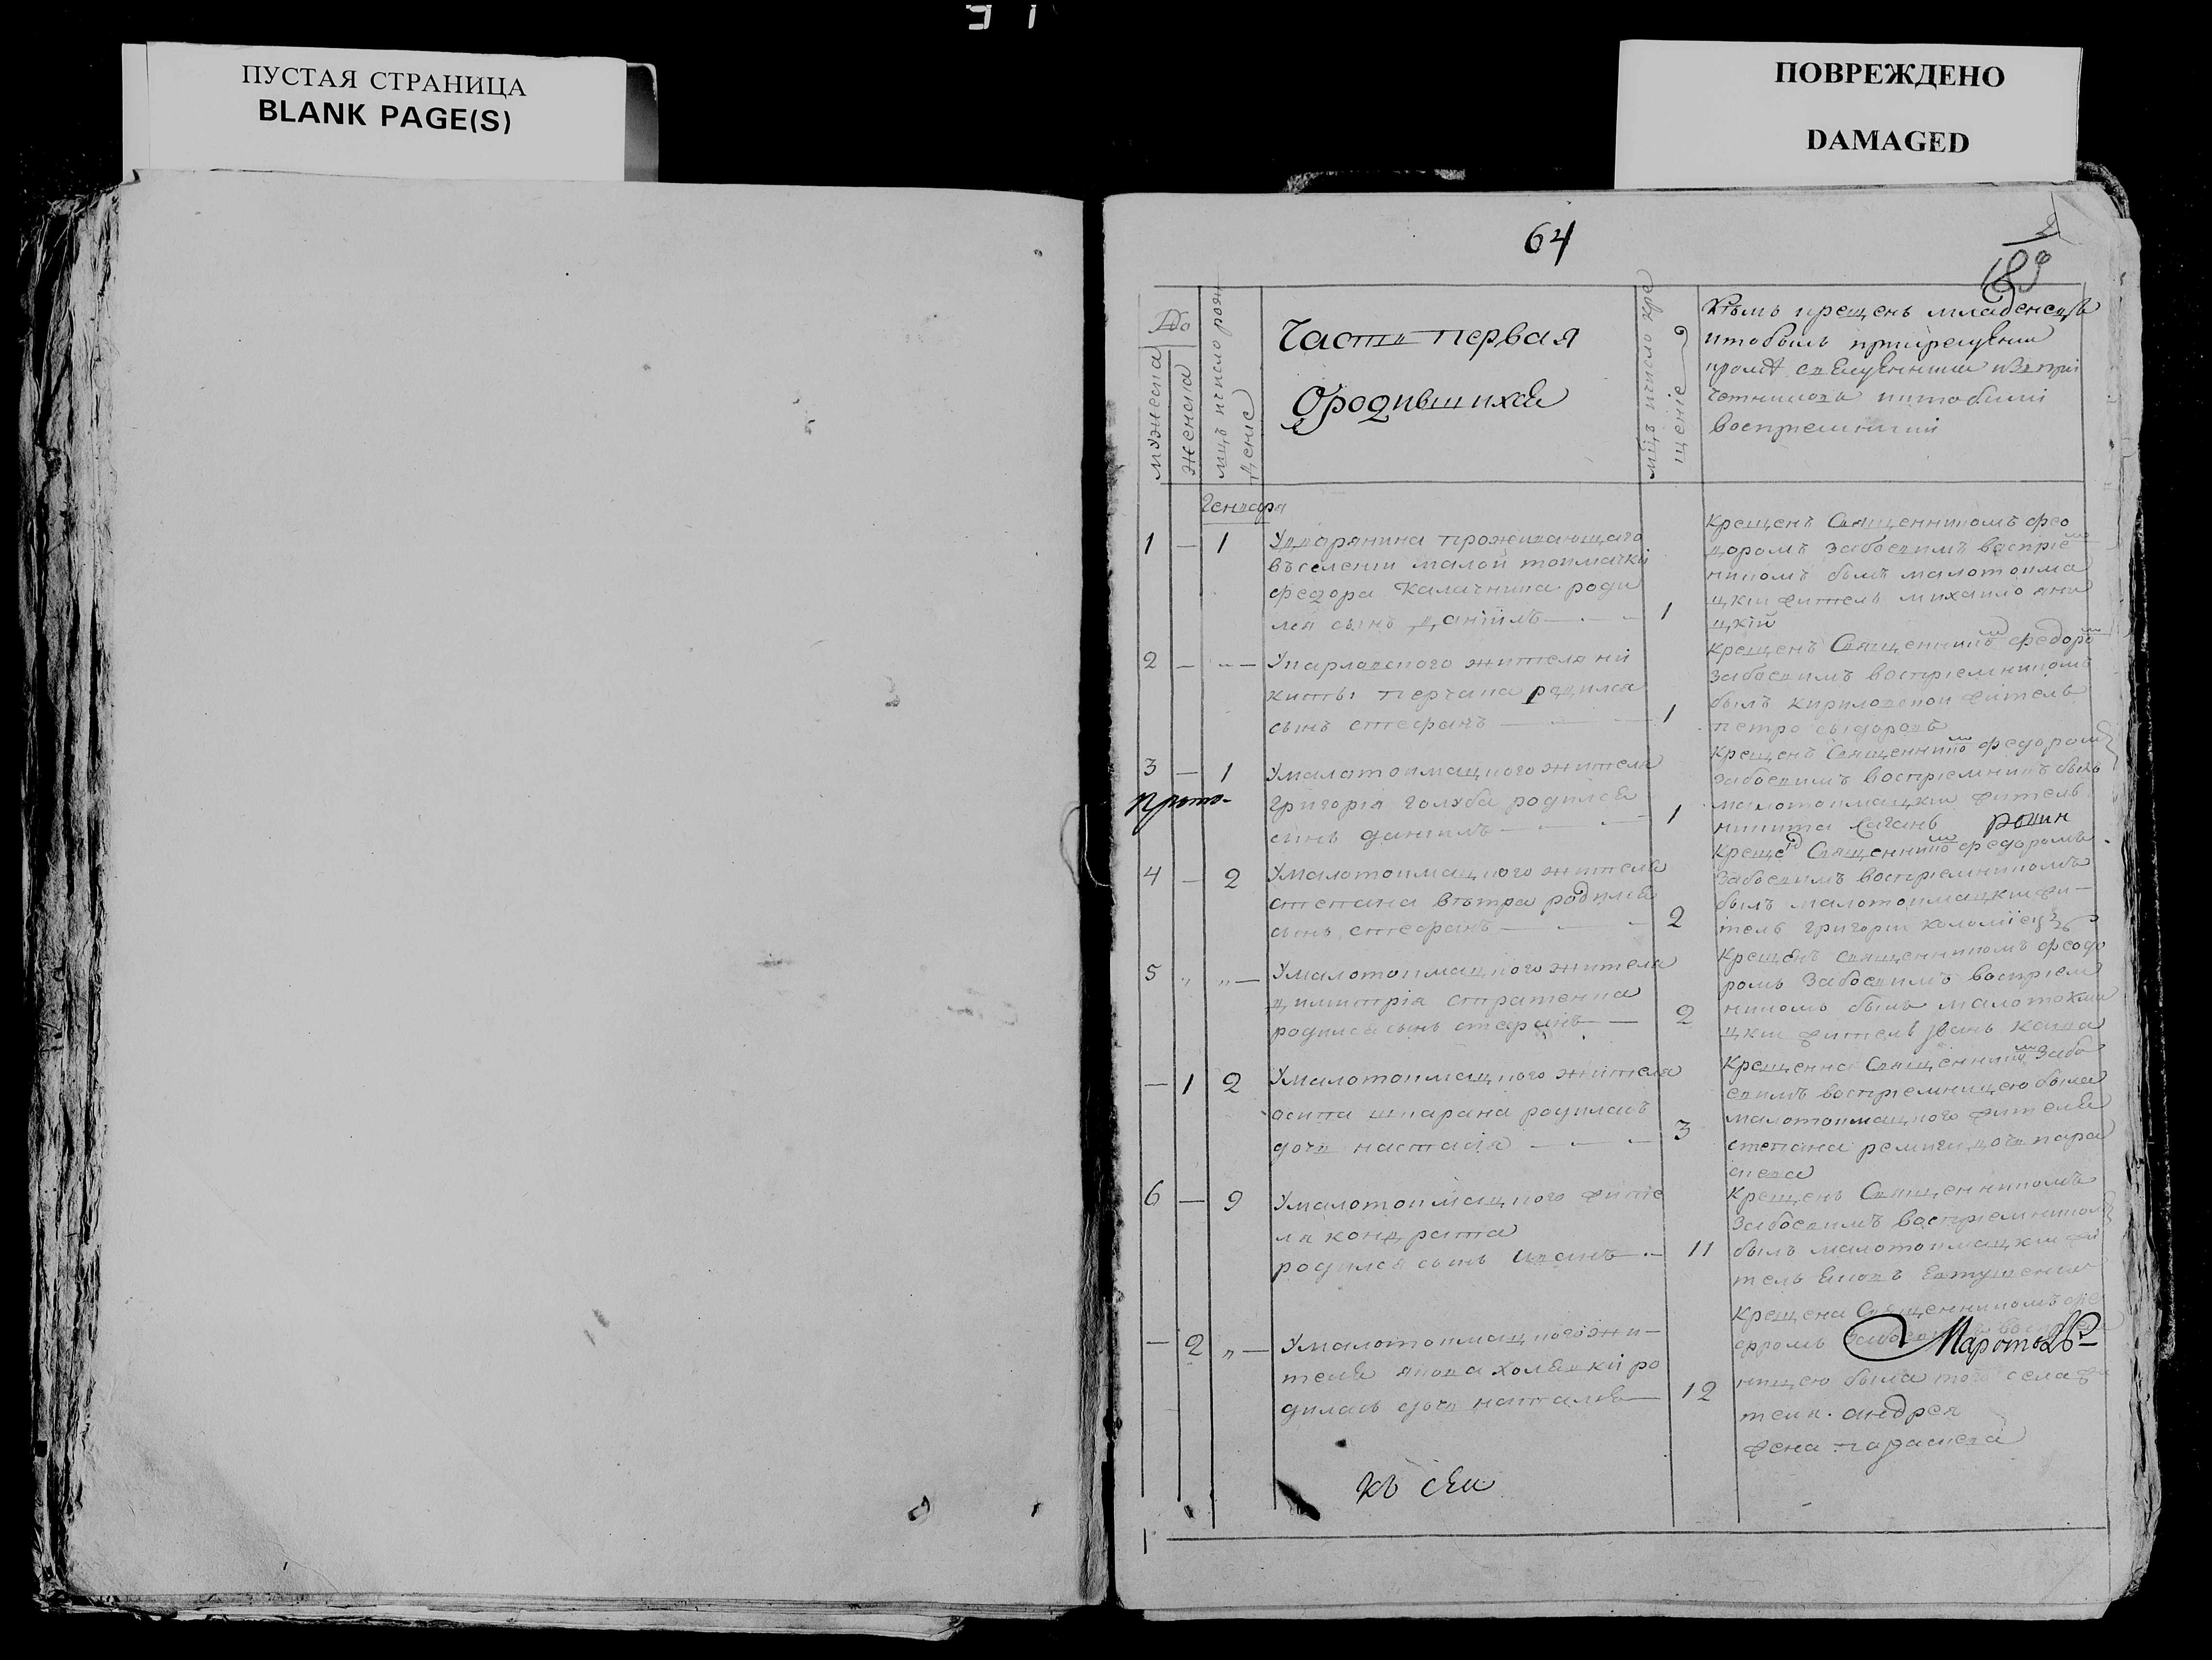 ПУСТАЯ СТРАНИЦА
BLANK PAGE(S)
ПОВРЕЖДЕНО
DAMAGED
64
2
189
мужеска
женска
мцъ ичисло рож
дение
Часть первая
Ородившихся
мцъ ичисло кре
щение
Кѣмъ крещенъ младенецъ
ктобылъ прикрещении
кромѣ священника изъ при
четниковъ
воспріемники
Генваря
1 — 1 Удворянина проживающаго
въселеніи малой токмачки
федора Калачника роди
лся сынъ даніилъ — 1
Крещенъ Священникомъ фео
доромъ Забоевимъ воспріем
никомъ былъ малотокма
цкій житель михаило яни
цкій
2 — „ — Укарловского жителя ни
киты перчака родился
сынъ стефанъ — 1
Крещенъ Священником федором
Забоевимъ воспріемникомъ
былъ кириловской житель
петро сыдоровъ
3 — 1 Умалотокмацкого жителя
григорія голуба родился
синъ даніилъ — 1
Крещенъ Священником федором
Забоевимъ воспріемникъ былъ
малотокмацкій житель
никита Саганъ
4 — 2 Умалотокмацкого жителя
степана вѣтра родился
сынъ стефанъ — 2
Креще Священником федоромъ
Забоевимъ воспріемникомъ
былъ малотокмацкій жи-
тель григорій коломіецъ
5 „ „ — Умалотокмацкого жителя
димитрія
родился сынъ стефанъ — 2
Крещенъ священникомъ феодо
ромъ Забоевимъ воспріем
никомъ былъ малотокма
цкій житель Іванъ
— 1 2 Умалотокмацкого жителя
осипа шпарака родилась
дочь настасія — 3
Крещенна Священником Забо
евимъ воспріемницею была
малотокмацкого жителя
степана дочь пара
скева
6 — 9 Умалотокмацкого жите
ля кондрата
родился сынъ иванъ — 11
Крещенъ Священникомъ
Забоевимъ воспріемником
былъ малотокмацкій жи
тель яковъ Евтушенко
— 2 „ — Умалотокмацкогожи-
теля якова холявки ро
дилась дочь наталія — 12
Крещена Священникомъ фе
ницею была того села жи
теля андрея
жена параскева
къ сей